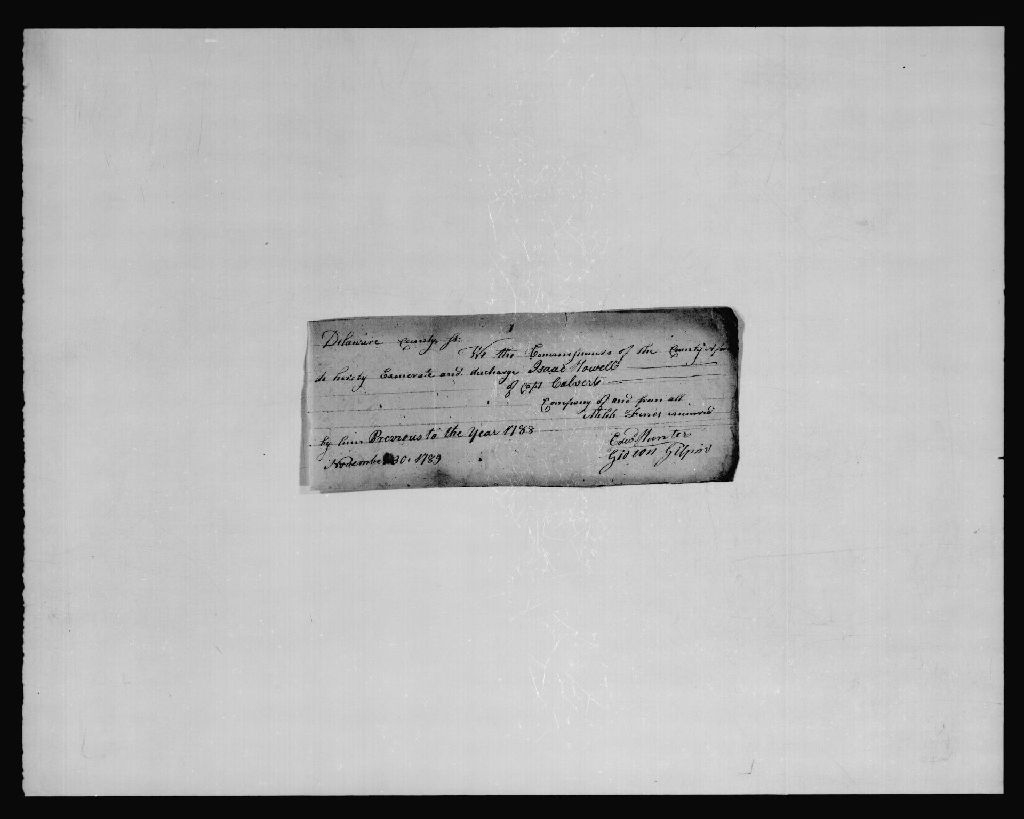 Delaware County ss.
We the Commissioners of the County afsd
do hereby Exonerate and discharge Isaac Howell
of Capt Calverts
Company of and from all
Militia Fines incurred
by him Previous to the Year 1788
November 30. 1789
Edwd Hunter
Gideon Gilpin